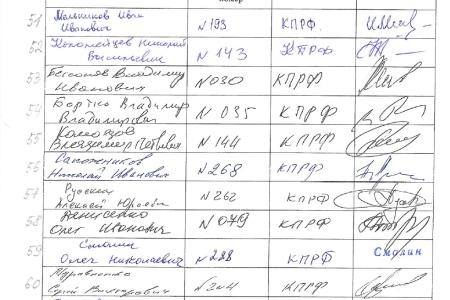 номер
51 Мельников Иван Иванович N 193 КПРФ
52 Коломейцев Николай Васильевич N 143 КПРФ
53 Бессонов Владимир Иванович N 030 КПРФ
54 Бортко Владимир Владимирович N 035 КПРФ
55 Комоедов Владимир Петрович N 144 КПРФ
56 Сапожников Николай Иванович N 268 КПРФ
57 Русских Алексей Юрьевич N 262 КПРФ
58 Денисенко Олег Иванович N 079 КПРФ
59 Смолин Олег Николаевич N 288 КПРФ Смолин
60 КПРФ